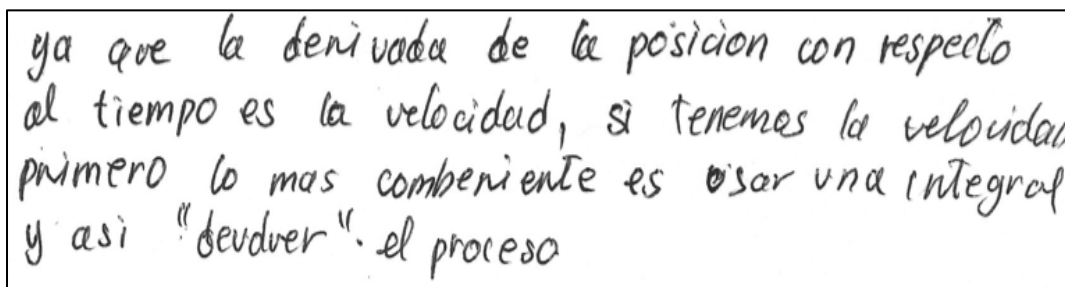 ya que la derivada de la posicion con respecto
al tiempo es la velocidad, si tenemos la velocidad
primero lo mas combeniente es usar una integral
y asi "devolver". el proceso